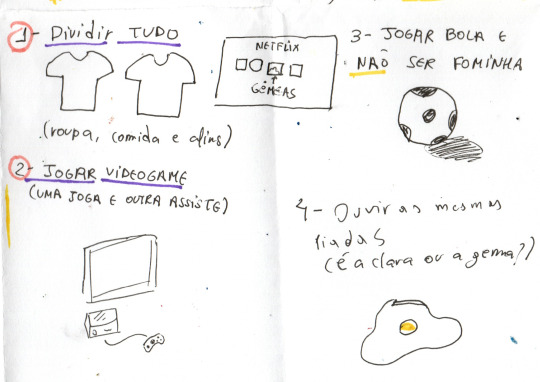 1- Dividir TUDO
NETFLIX
GÊMEAS
(roupa, comida e afins)
2- JOGAR VIDEOGAME
(UMA JOGA E OUTRA ASSISTE)
3- JOGAR BOLA E
NÃO SER FOMINHA
4- Ouvir as mesmas
piadas
(é a clara ou a gema?)